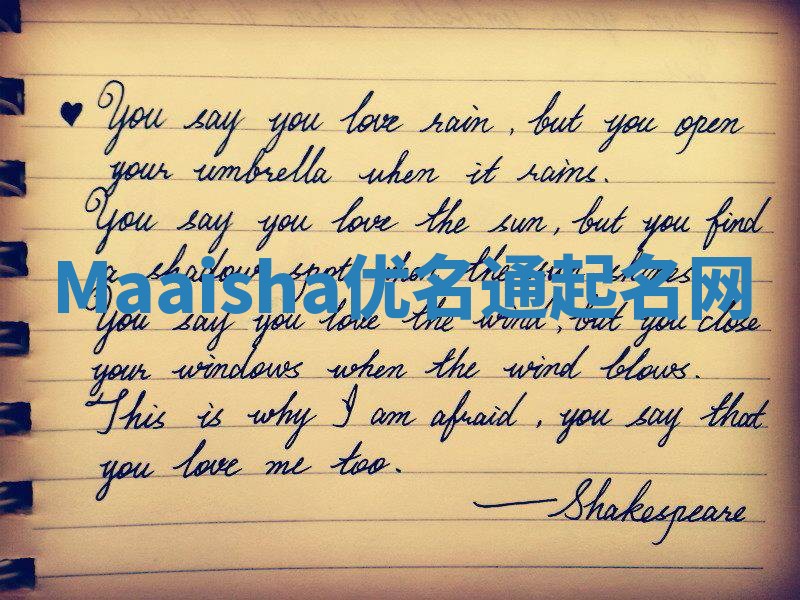 ♥ You say you love rain, but you open
your umbrella when it rains.
You say you love the sun, but you find
a shadow spot when the sun shines.
Maaisha优名通起名网
You say you love the wind, but you close
your windows when the wind blows.
This is why I am afraid, you say that
you love me too.
—Shakespeare